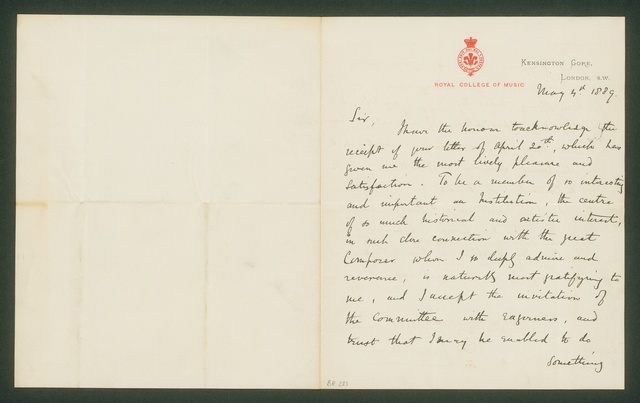 ROYAL COLLEGE OF MUSIC
KENSINGTON GORE,
LONDON, S.W.
May 4th 1889.
Sir,
I have the honour to acknowledge the
receipt of your letter of April 20th, which has
given me the most lively pleasure and
satisfaction. To be a member of so interesting
and important an Institution, the centre
of so much historical and artistic interest,
in such close connection with the great
Composer whom I so deeply admire and
reverence, is naturally most gratifying to
me, and I accept the invitation of
the Committee with eagerness, and
trust that I may be enabled to do
something